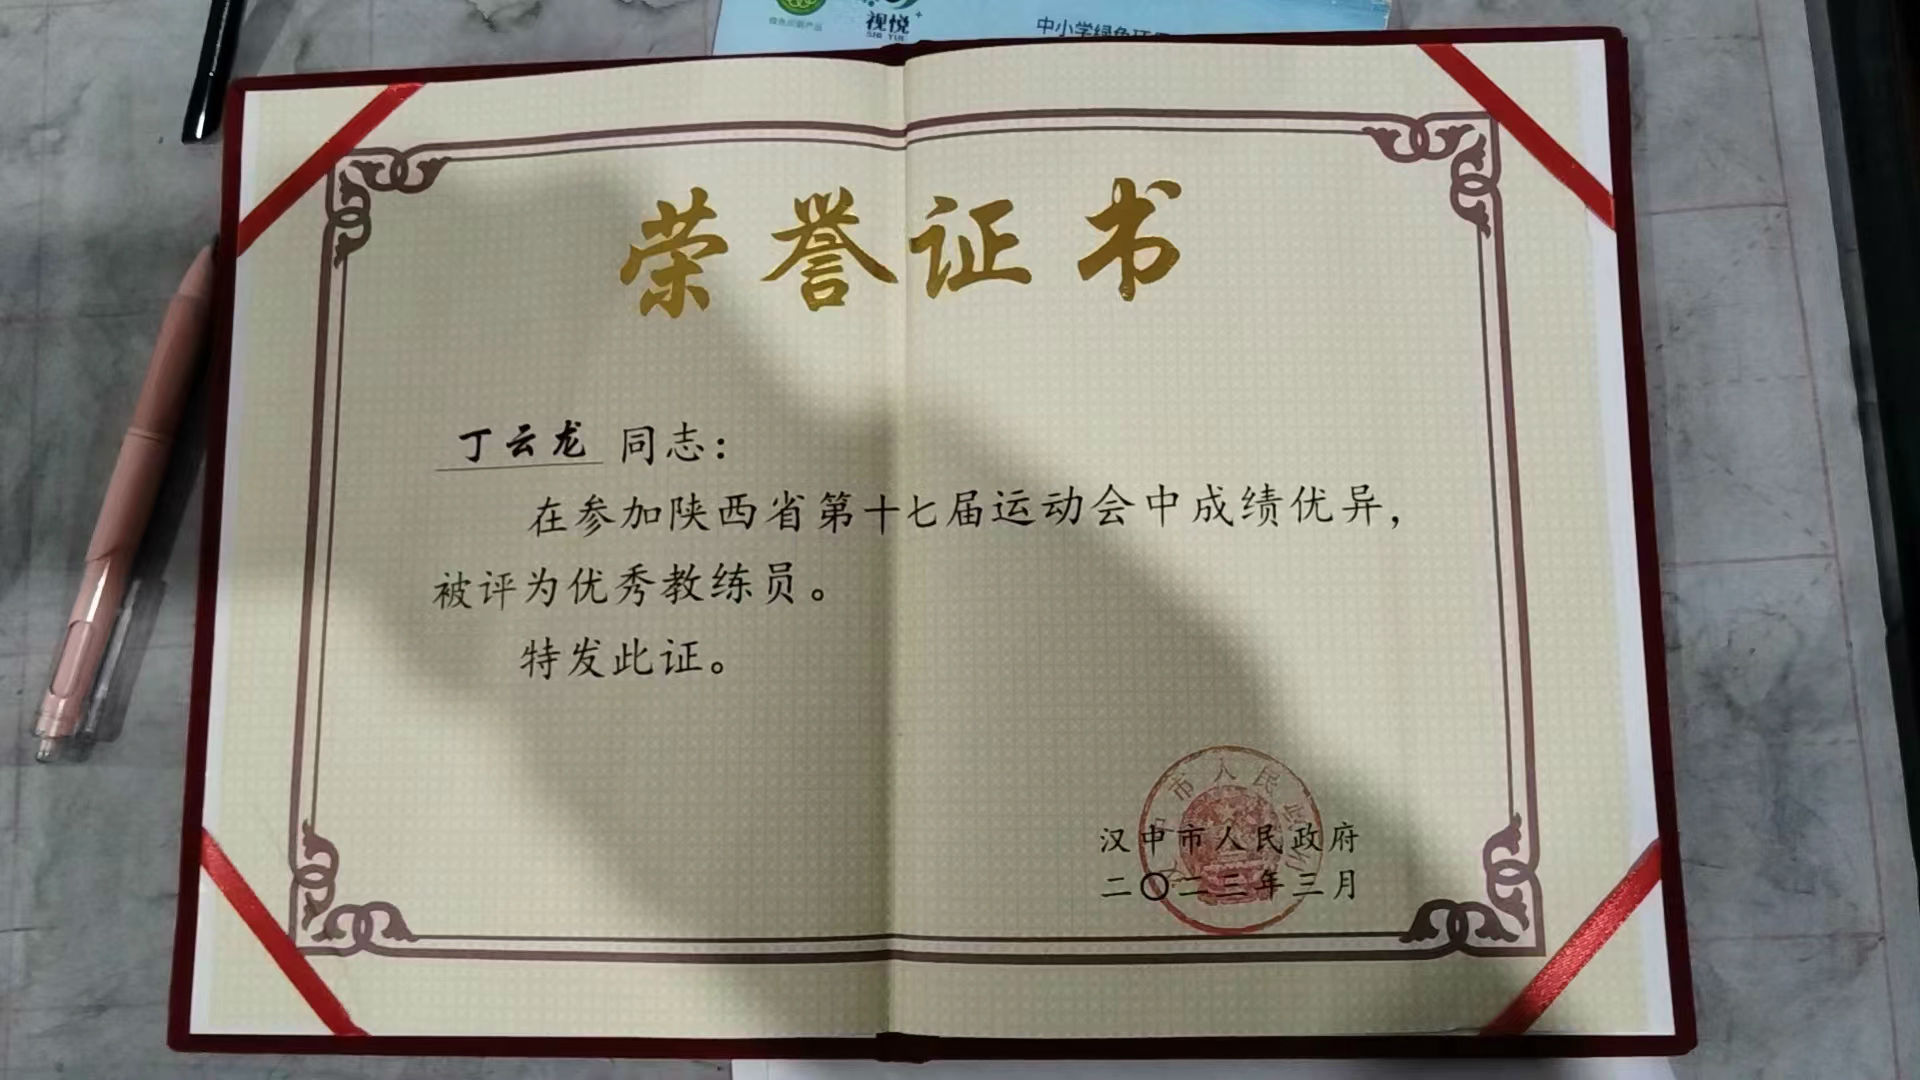 绿色印刷产品
视悦
SHI YUE
中小学绿色
荣誉证书
丁云龙 同志：
在参加陕西省第十七届运动会中成绩优异，
被评为优秀教练员。
特发此证。
市人民政
汉中市人民政府
二〇二三年三月